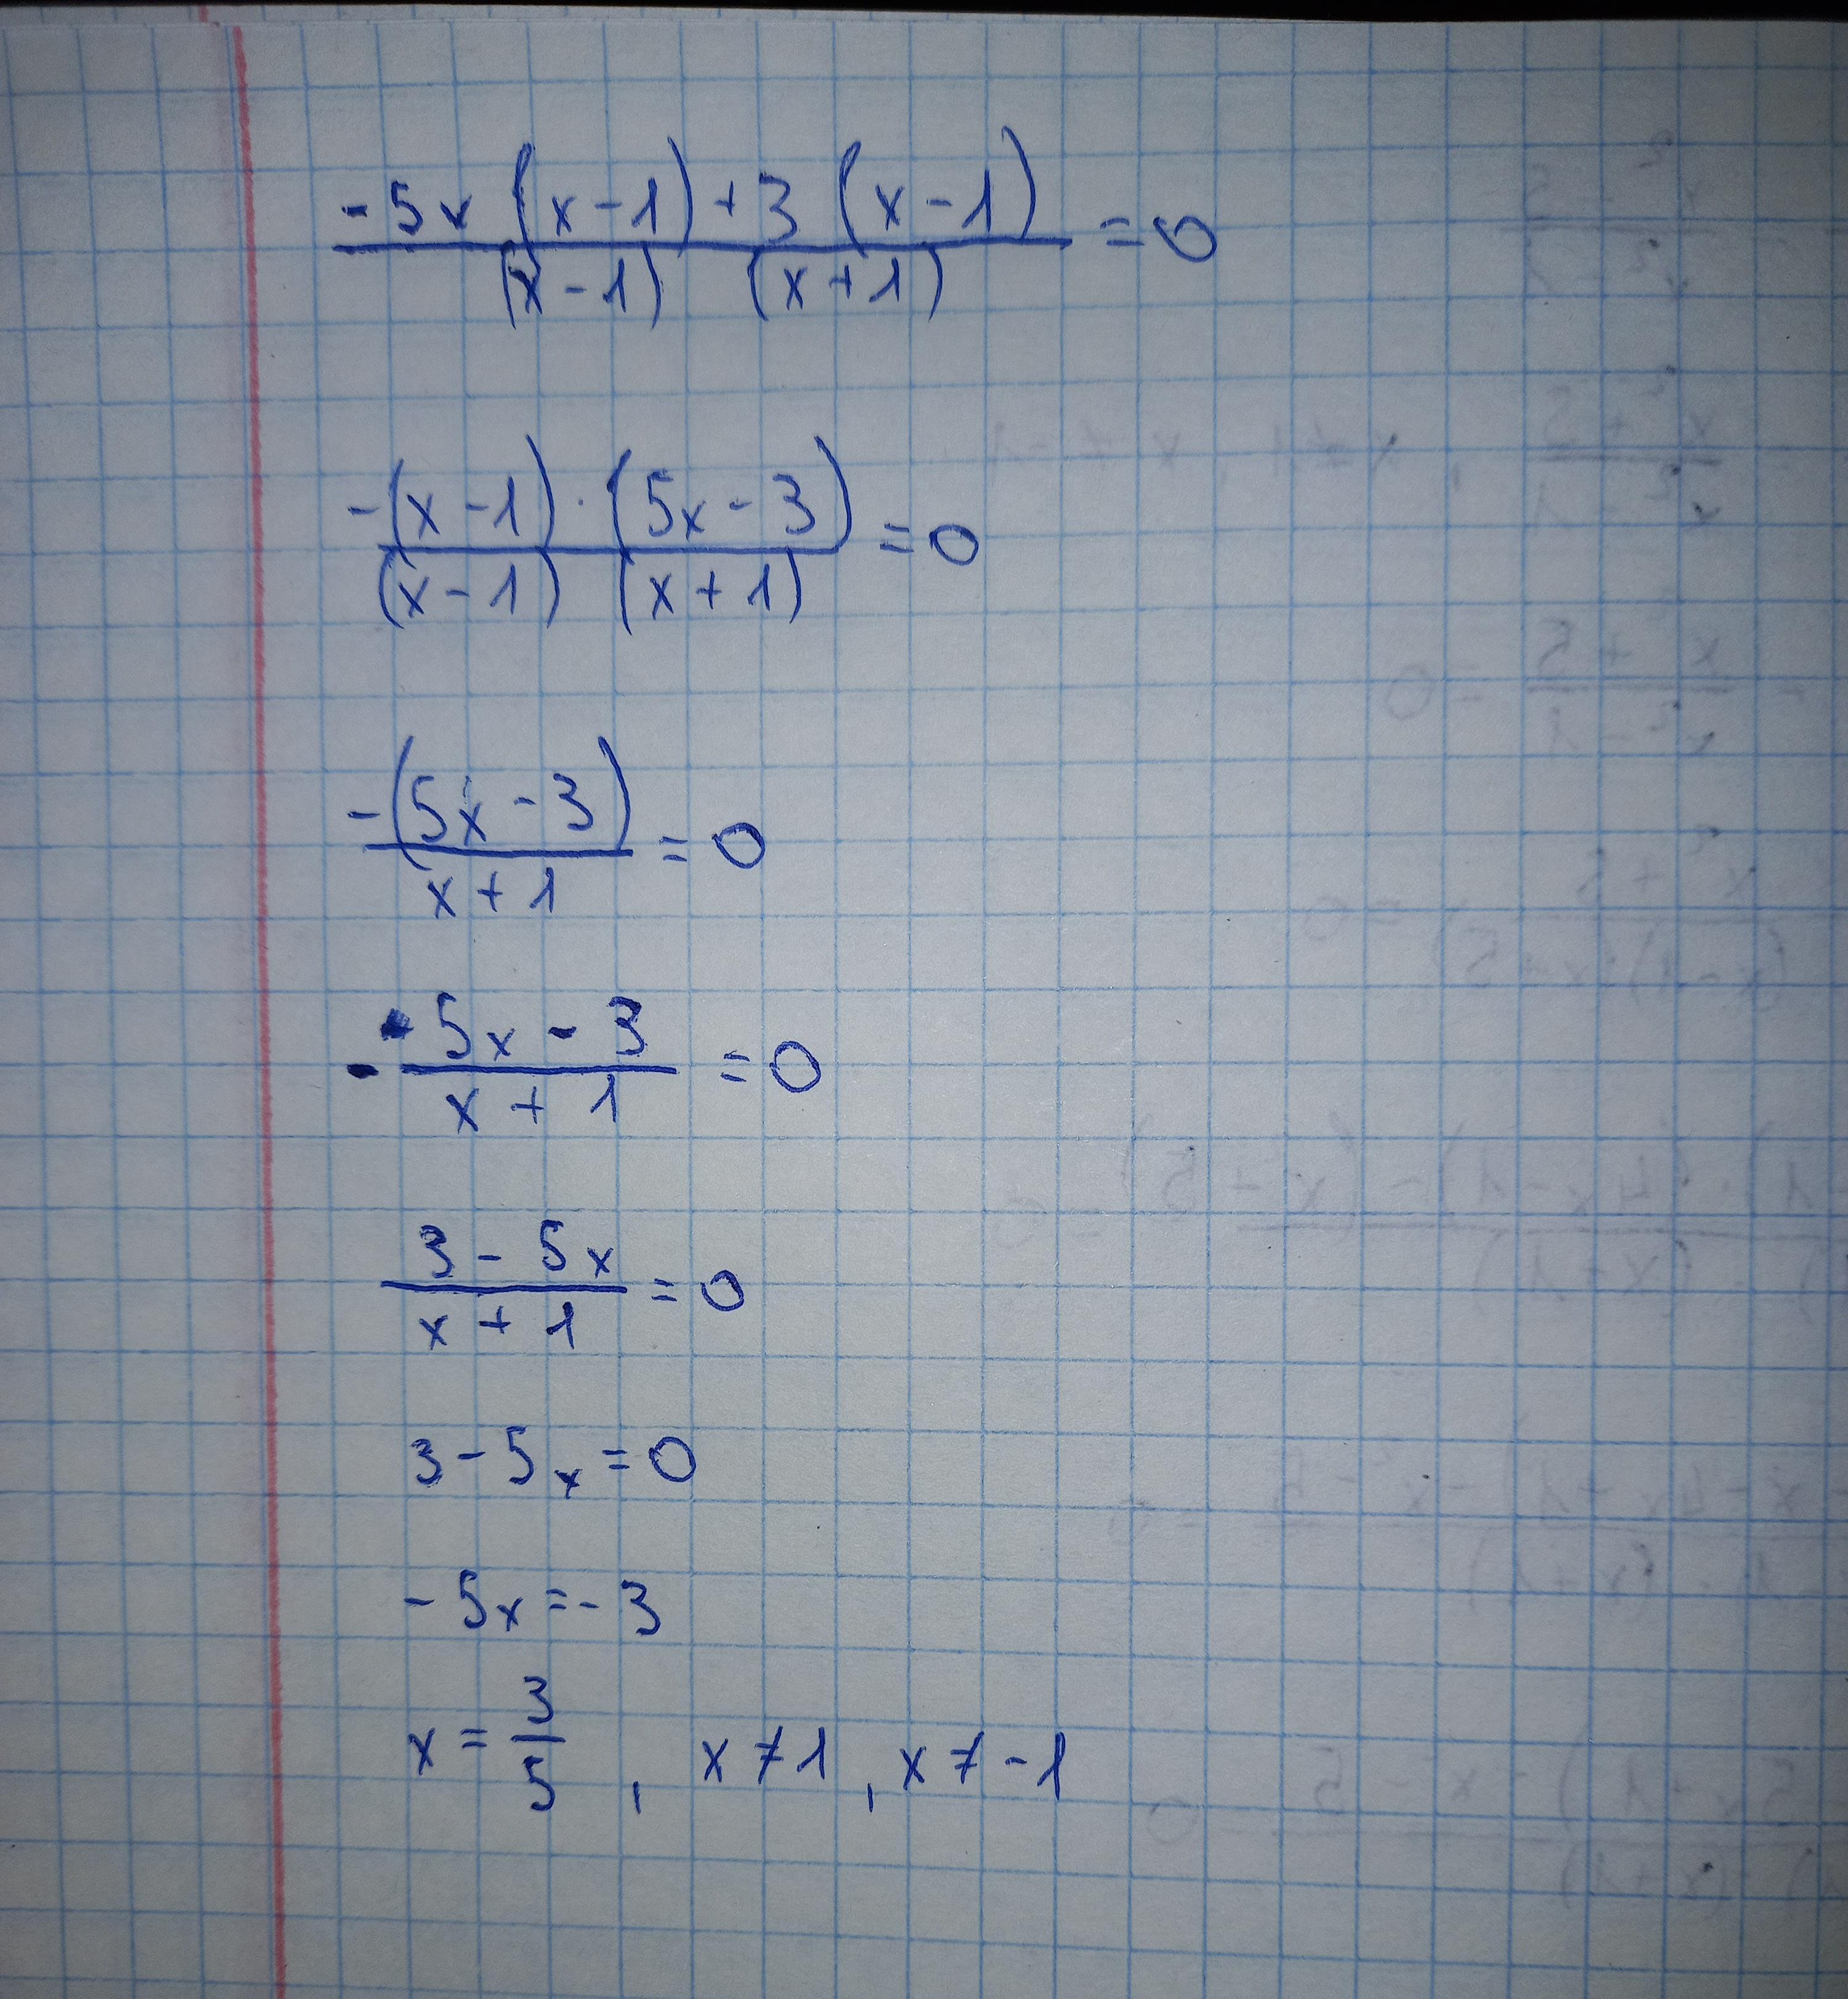 -5x (x-1)+3 (x-1)
(x-1) (x+1) =0
-(x-1)·(5x-3)
(x-1) (x+1) =0
-(5x-3)
x+1 =0
- 5x-3
x+1 =0
3-5x
x+1 =0
3-5x=0
-5x=-3
x=3/5, x≠1, x≠-1